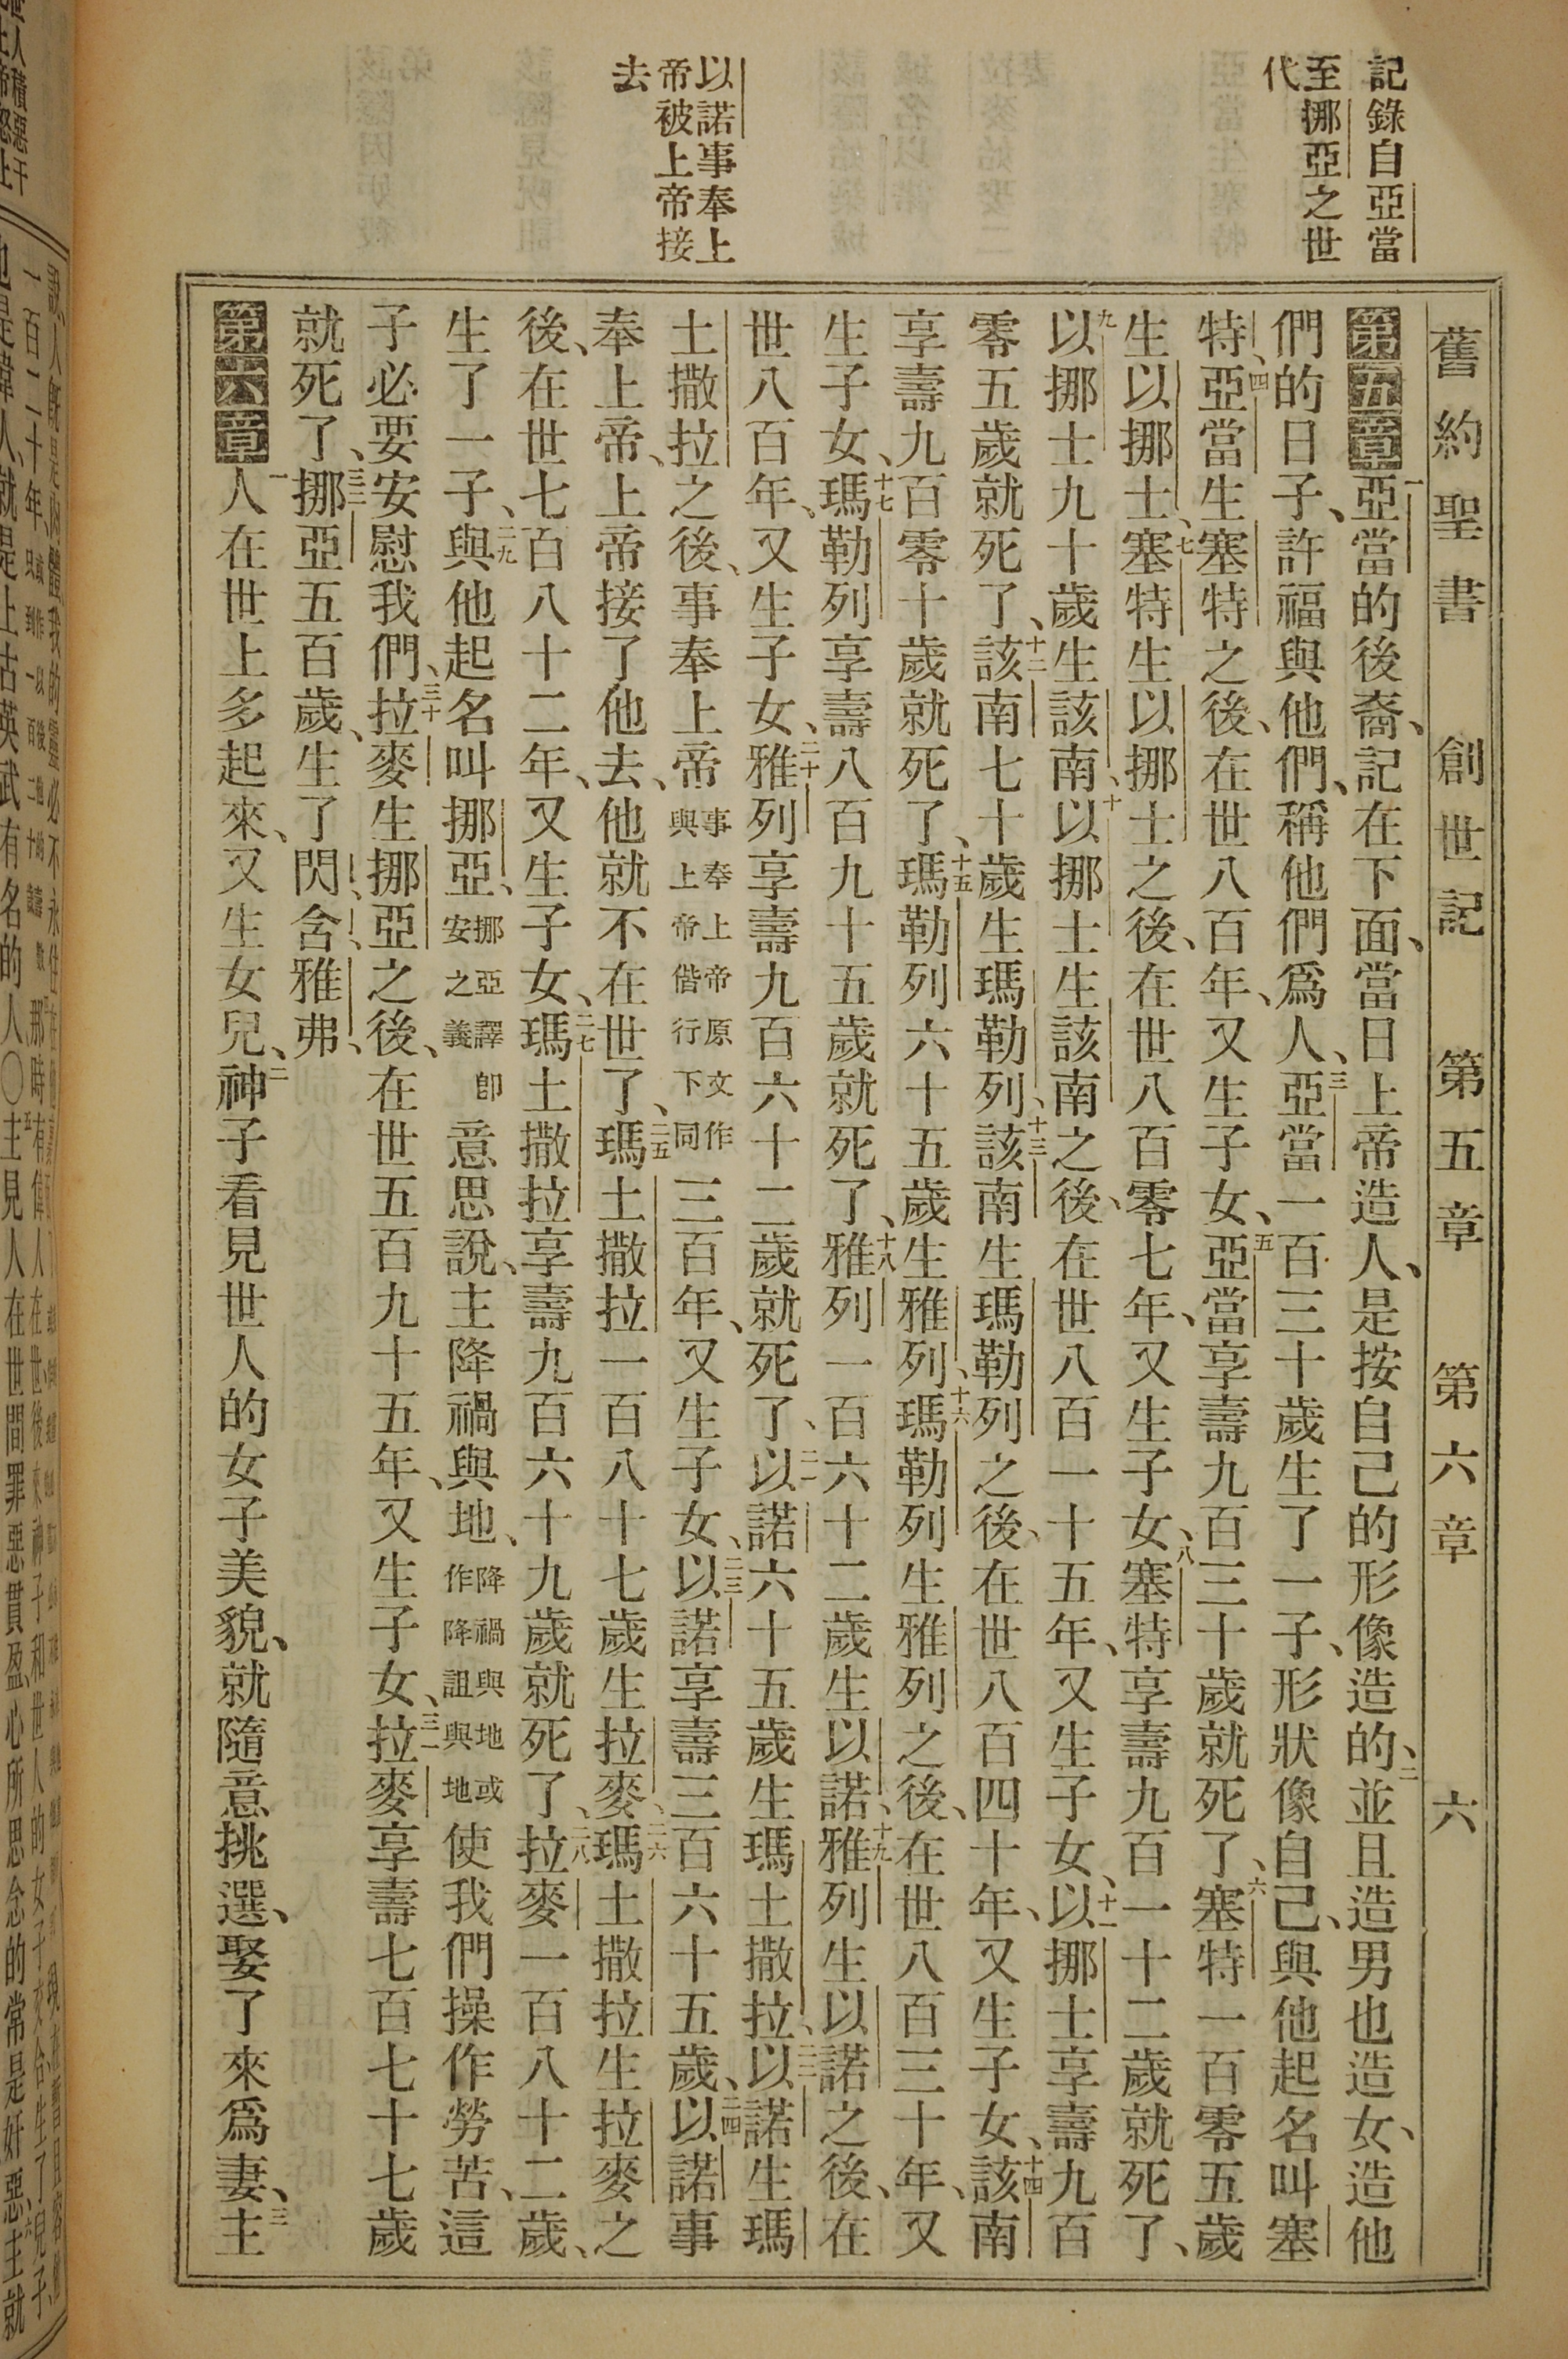 舊約聖書 創世記 第五章 第六章 六
記錄自亞當
至挪亞之世
代
以諾事奉上
帝被上帝接
去
第五章一亞當的後裔、記在下面、當日上帝造人、是按自己的形像造的、二並且造男也造女、造他
們的日子、許福與他們、稱他們爲人、三亞當一百三十歲生了一子、形狀像自己、與他起名叫塞
特、四亞當生塞特之後、在世八百年、又生子女、五亞當享壽九百三十歲就死了、六塞特一百零五歲
生以挪士、七塞特生以挪士之後、在世八百零七年、又生子女、八塞特享壽九百一十二歲就死了、
九以挪士九十歲生該南、十以挪士生該南之後、在世八百一十五年、又生子女、十一以挪士享壽九百
零五歲就死了、十二該南七十歲生瑪勒列、十三該南生瑪勒列之後、在世八百四十年、又生子女、十四該南
享壽九百零十歲就死了、十五瑪勒列六十五歲生雅列、十六瑪勒列生雅列之後、在世八百三十年、又
生子女、十七瑪勒列享壽八百九十五歲就死了、十八雅列一百六十二歲生以諾、十九雅列生以諾之後、在
世八百年、又生子女、二十雅列享壽九百六十二歲就死了、二一以諾六十五歲生瑪土撒拉、二二以諾生瑪
土撒拉之後、事奉上帝事奉上帝原文作與上帝偕行下同三百年、又生子女、二三以諾享壽三百六十五歲、二四以諾事
奉上帝、上帝接了他去、他就不在世了、二五瑪土撒拉一百八十七歲生拉麥、二六瑪土撒拉生拉麥之
後、在世七百八十二年、又生子女、二七瑪土撒拉享壽九百六十九歲就死了、二八拉麥一百八十二歲、
生了一子、二九與他起名叫挪亞、挪亞譯卽安之義意思說、主降禍與地、降禍與地或作降詛與地使我們操作勞苦、這
子必要安慰我們、三十拉麥生挪亞之後、在世五百九十五年、又生子女、三一拉麥享壽七百七十七歲
就死了、三二挪亞五百歲、生了閃、含、雅弗、
第六章一人在世上多起來、又生女兒、二神子看見世人的女子美貌、就隨意挑選、娶了來爲妻、三主